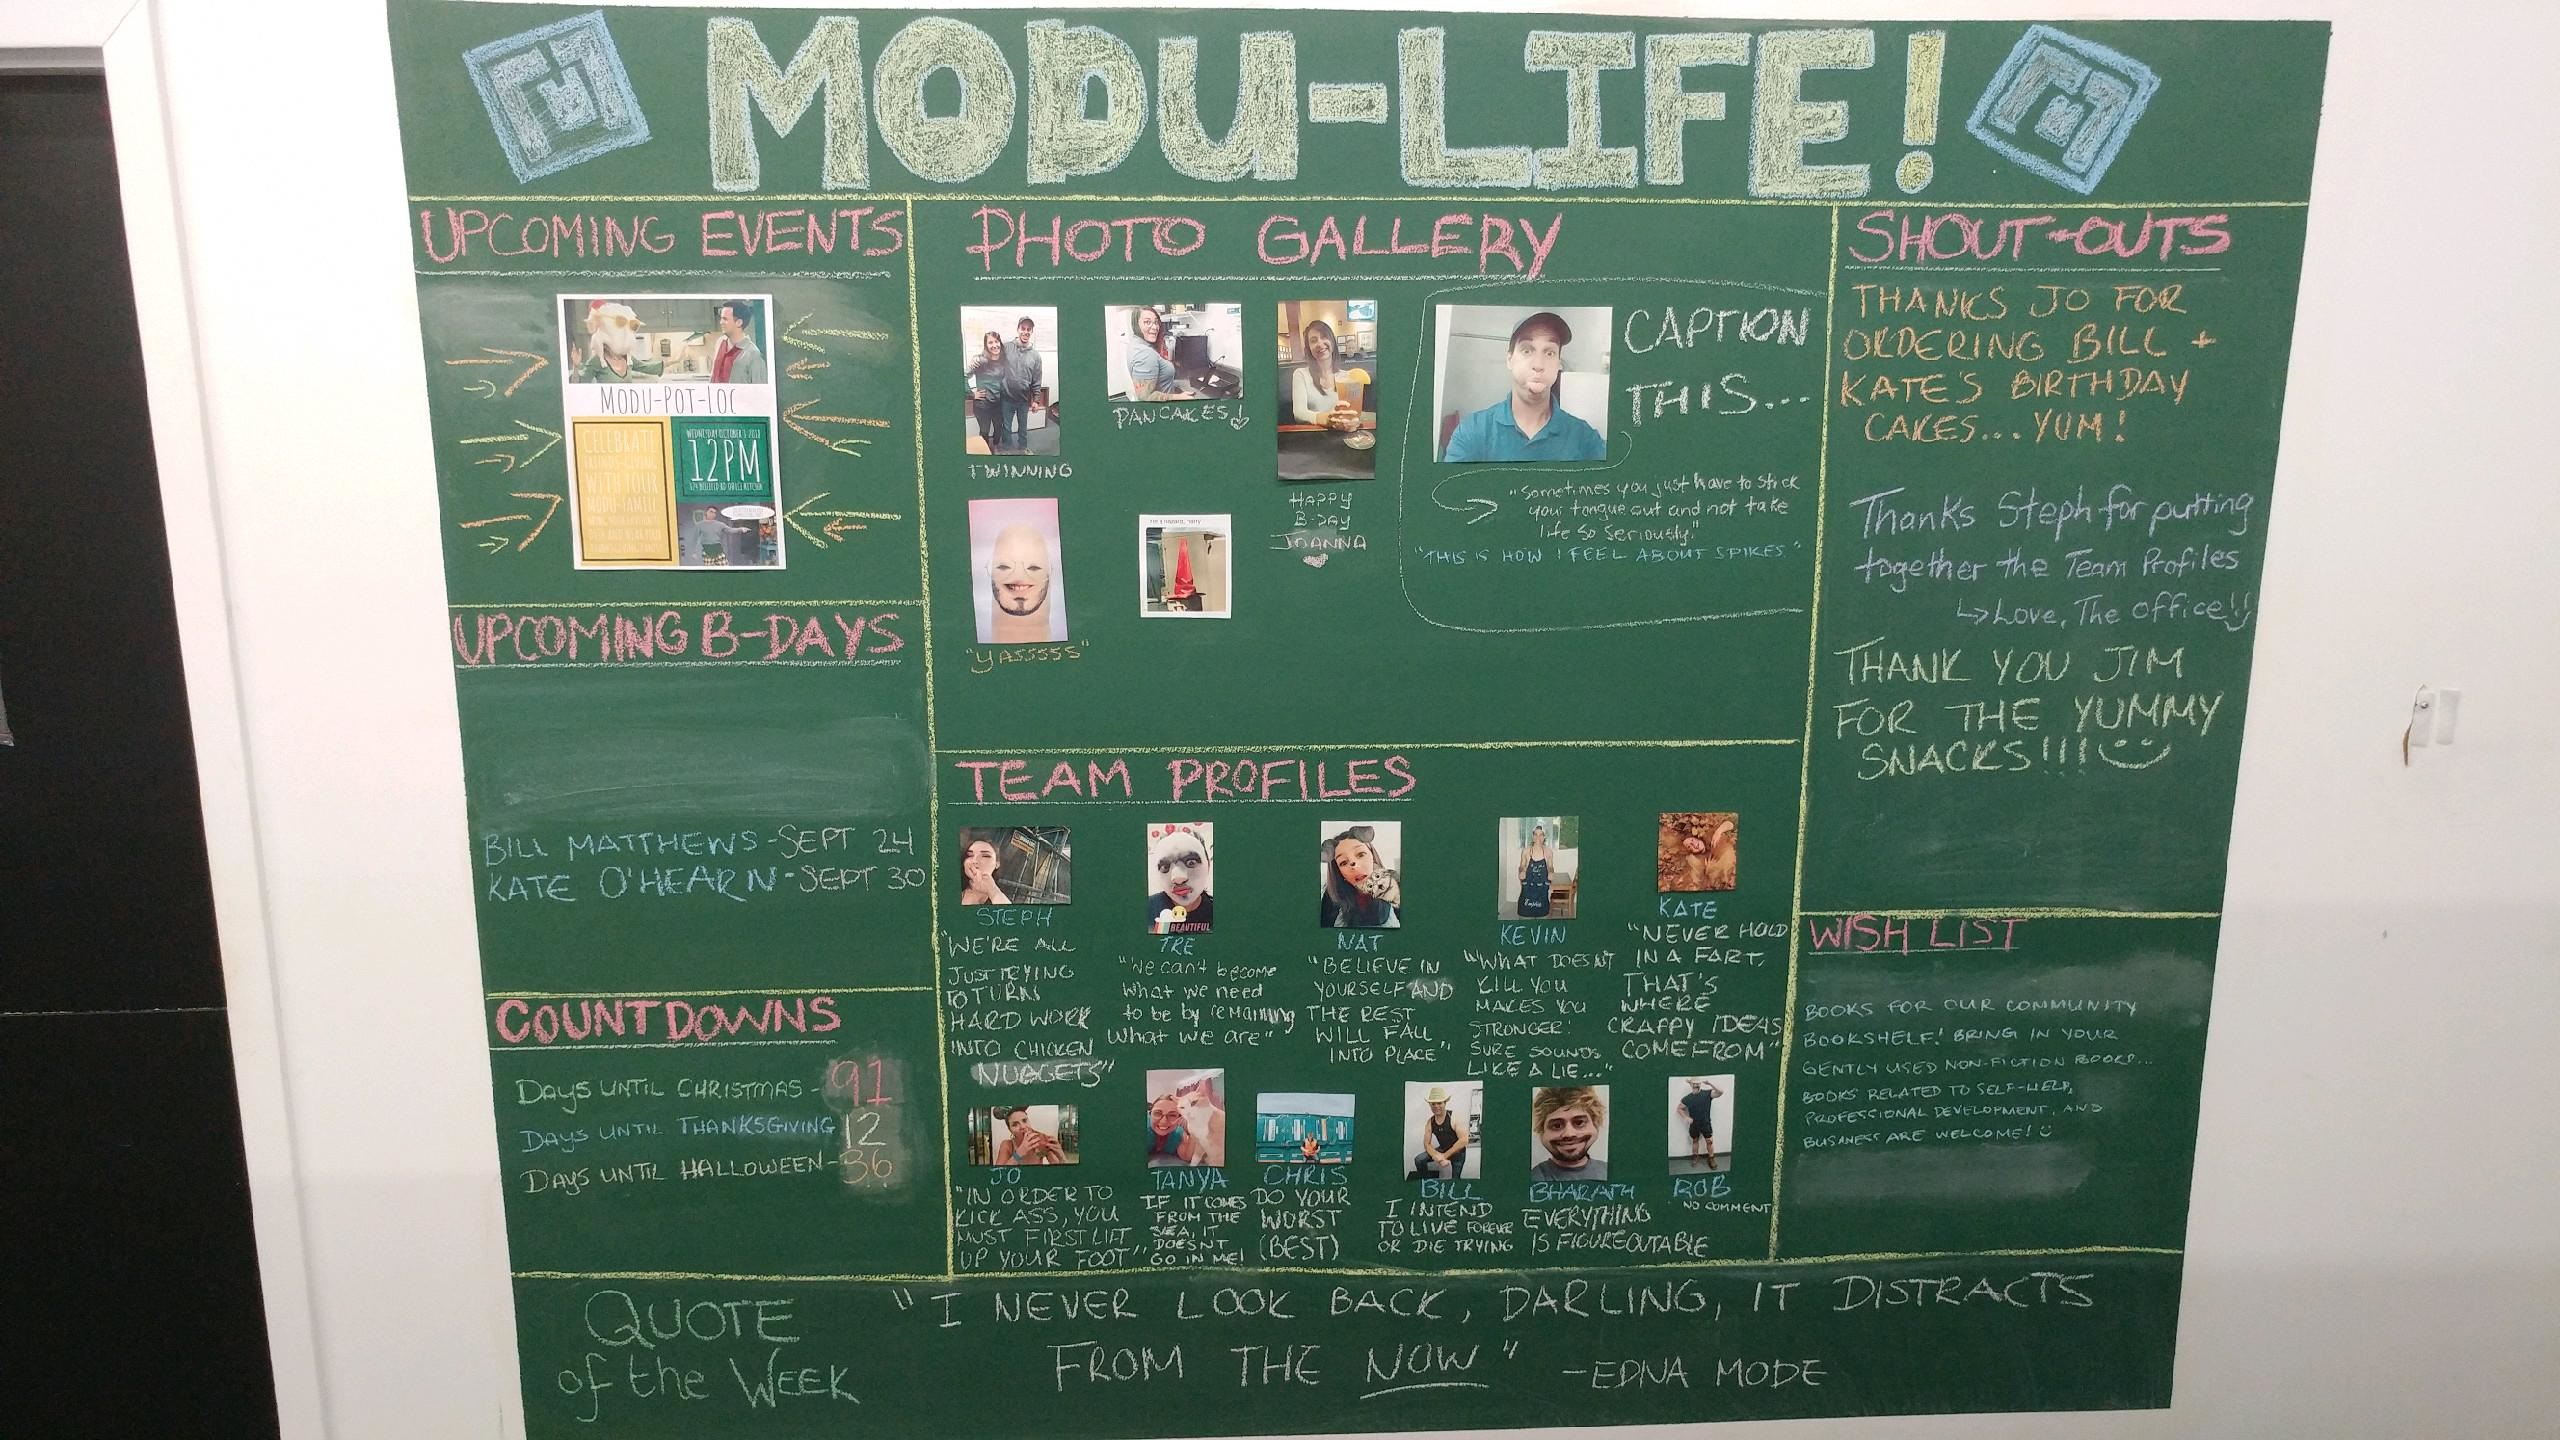 MODU-LIFE!
UPCOMING EVENTS
MODU-POT-LUC
CELEBRATE
FRIENDS-GIVING
WITH YOUR
MODU-FAMILY
WEDNESDAY OCTOBER 3 2018
12PM
UPCOMING B-DAYS
BILL MATTHEWS - SEPT 24
KATE O'HEARN - SEPT 30
COUNTDOWNS
DAYS UNTIL CHRISTMAS - 91
DAYS UNTIL THANKSGIVING 12
DAYS UNTIL HALLOWEEN - 36
PHOTO GALLERY
TWINNING
PANCAKES
HAPPY
B-DAY
JOANNA
"YASSSSS"
CAPTION
THIS...
"Sometimes you just have to stick
your tongue out and not take
life so seriously."
"THIS IS HOW I FEEL ABOUT SPIKES."
TEAM PROFILES
STEPH
"WE'RE ALL
JUST TRYING
TO TURN
HARD WORK
INTO CHICKEN
NUGGETS"
BEAUTIFUL
TRE
"We can't become
what we need
to be by remaining
what we are"
NAT
"BELIEVE IN
YOURSELF AND
THE REST
WILL FALL
INTO PLACE"
KEVIN
"WHAT DOESN'T
KILL YOU
MAKES YOU
STRONGER!
SURE SOUNDS
LIKE A LIE..."
KATE
"NEVER HOLD
IN A FART,
THAT'S
WHERE
CRAPPY IDEAS
COME FROM"
JO
"IN ORDER TO
KICK ASS, YOU
MUST FIRST LIFT
UP YOUR FOOT"
TANYA
IF IT COMES
FROM THE
SEA, IT
DOESNT
GO IN ME!
CHRIS
DO YOUR
WORST
(BEST)
BILL
I INTEND
TO LIVE FOREVER
OR DIE TRYING
BHARATH
EVERYTHING
IS FIGUREOUTABLE
ROB
NO COMMENT
SHOUT-OUTS
THANKS JO FOR
ORDERING BILL +
KATE'S BIRTHDAY
CAKES...YUM!
Thanks Steph for putting
together the Team Profiles
Love, The office!!
THANK YOU JIM
FOR THE YUMMY
SNACKS!!!
WISH LIST
BOOKS FOR OUR COMMUNITY
BOOKSHELF! BRING IN YOUR
GENTLY USED NON-FICTION BOOKS...
BOOKS RELATED TO SELF-HELP,
PROFESSIONAL DEVELOPMENT, AND
BUSINESS ARE WELCOME!
QUOTE
of the WEEK
"I NEVER LOOK BACK, DARLING, IT DISTRACTS
FROM THE NOW" -EDNA MODE